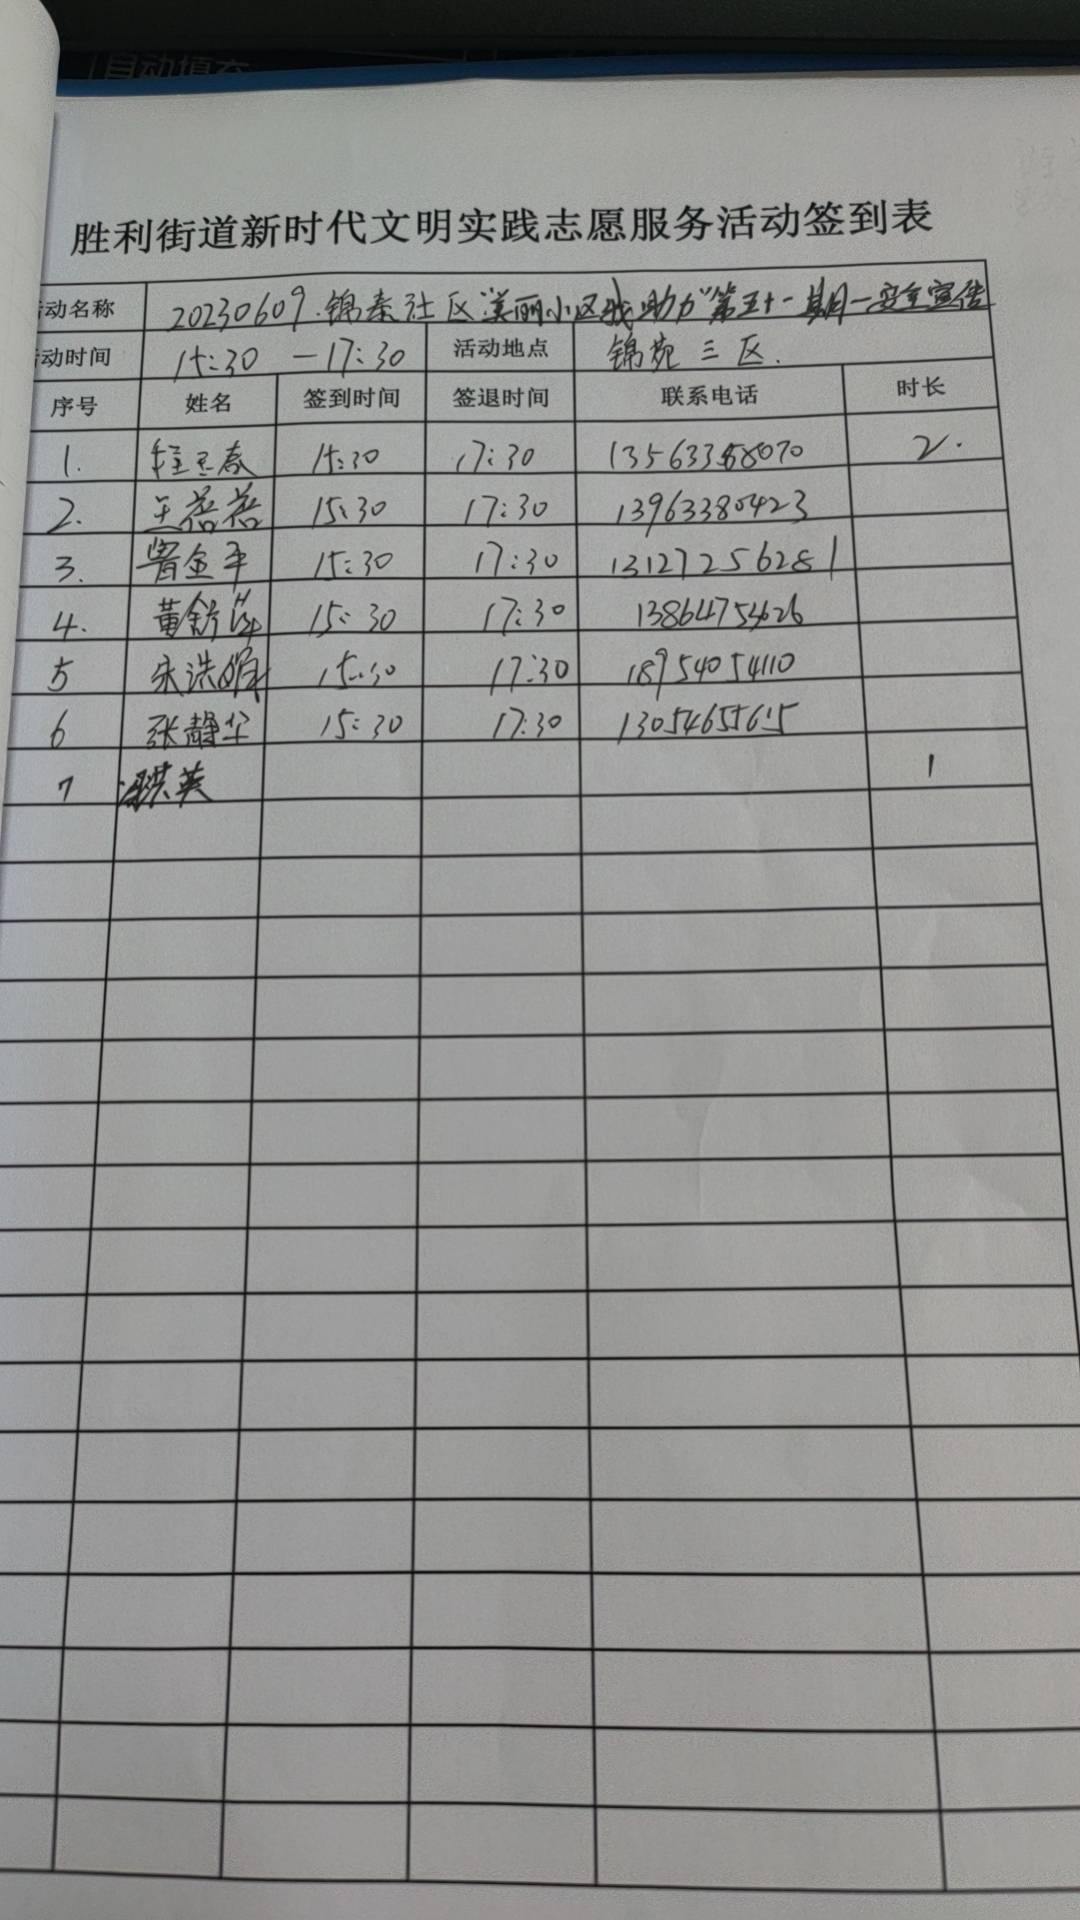 自动填充
胜利街道新时代文明实践志愿服务活动签到表
活动名称 20230609.锦泰社区"美丽小区我助力"第五十一期—安全宣传
活动时间 15:30 —17:30 活动地点 锦苑三区.
序号 姓名 签到时间 签退时间 联系电话 时长
1. 程玉春 15:30 17:30 2.
2. 王蓓蓓 15:30 17:30 13963380423
3. 曾金平 15:30 17:30 13127256281
4. 黄舒萍 15:30 17:30 13864754626
5 宋洪娟 15:30 17:30 18954054110
6 张静华 15:30 17:30 13054655615
7 洪英 1